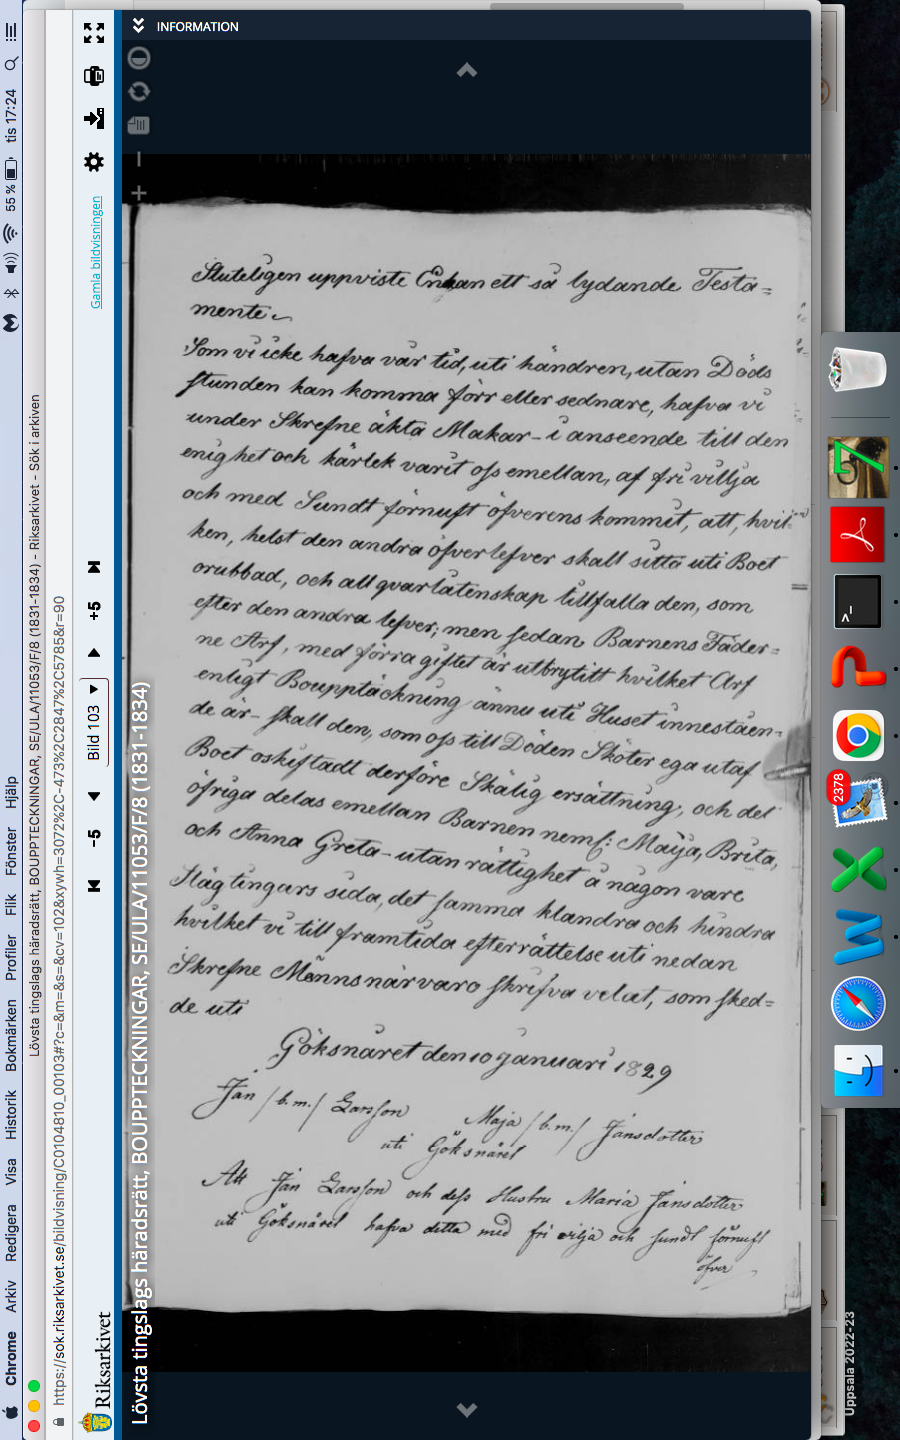 Chrome Arkiv Redigera Visa Historik Bokmärken Profiler Flik Fönster Hjälp 55 % tis 17:24
Lövsta tingslags häradsrätt, BOUPPTECKNINGAR, SE/ULA/11053/F/8 (1831-1834) - Riksarkivet - Sök i arkiven
https://sok.riksarkivet.se/bildvisning/C0104810_00103#?c=&m=&s=&cv=102&xywh=3072%2C-473%2C2847%2C5785&r=90
Riksarkivet
-5 Bild 103 +5
Gamla bildvisningen
Lövsta tingslags häradsrätt, BOUPPTECKNINGAR, SE/ULA/11053/F/8 (1831-1834)
INFORMATION
Sluteligen uppviste Enkan ett så lydande Testa=
mente
Som vi icke hafva vår tid, uti händren, utan Döds
stunden kan komma förr eller sednare, hafva vi
under Skrefne äkta Makar – i anseende till den
enighet och kärlek varit oss emellan, af fri villja
och med Sundt förnuft öfverens kommit, att, hvil
ken, helst den andra öfverlefver skall sitta uti Boet
orubbad, och all qvarlåtenskap tillfalla den, som
efter den andra lefver; men sedan Barnens Fäder=
ne Arf, med förra giftet är utbrytitt hvilket Arf
enligt Boupptäckning ännu uti Huset inneståen-
de är – skall den, som oss till Döden Sköter ega utaf
Boet oskiftadt derföre Skälig ersättning, och det
öfriga delas emellan Barnen neml: Maija, Brita,
och Anna Greta – utan rättighet å någon vare
Slägtingars sida, det samma klandra och hindra
hvilket vi till framtida efterrättelse uti nedan
Skrefne Männs närvaro skrifva velat, som sked=
de uti
Göksnåret den 10 Januari 1829
Jan /b.m./ Larsson Maja /b.m./ Jansdotter
uti Göksnåret
Att Jan Larsson och dess Hustru Maria Jansdotter
uti Göksnåret hafva detta med fri vilja och sundt förnuft
öfver
2378
Uppsala 2022-23